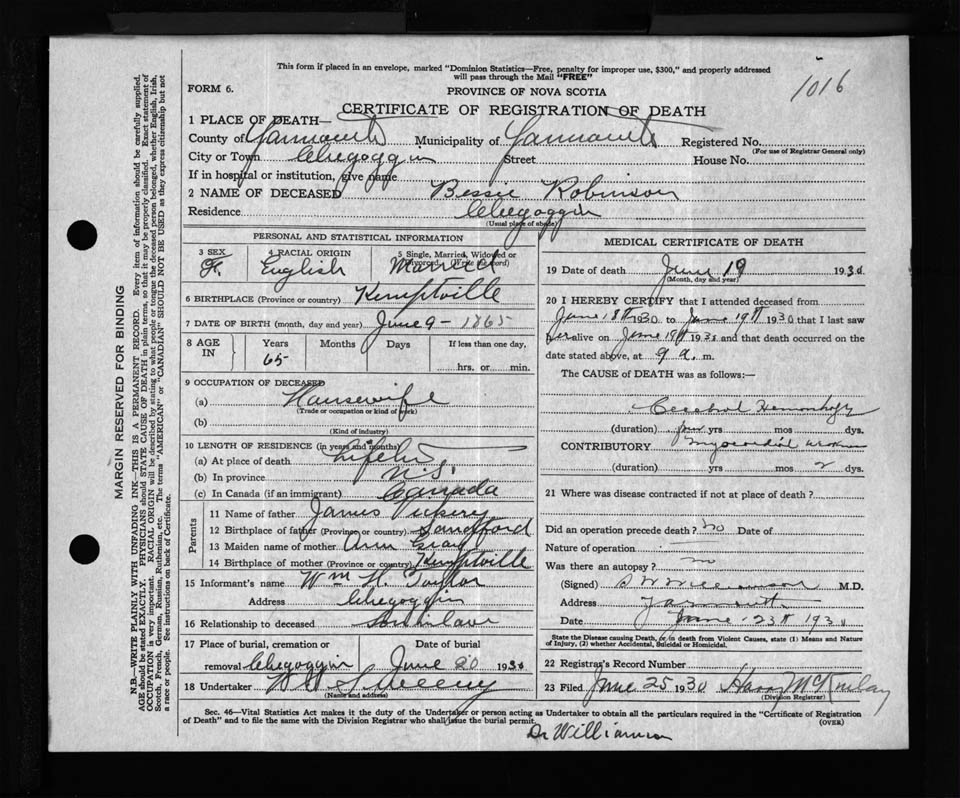 This form if placed in an envelope, marked "Dominion Statistics—Free, penalty for improper use, $300," and properly addressed
will pass through the Mail "FREE"
1016
FORM 6.
PROVINCE OF NOVA SCOTIA
CERTIFICATE OF REGISTRATION OF DEATH
1 PLACE OF DEATH—
County of Yarmouth Municipality of Yarmouth Registered No.
(For use of Registrar General only)
City or Town Chegoggin Street House No.
If in hospital or institution, give name
2 NAME OF DECEASED Bessie Robinson
Residence Chegoggin
(Usual place of abode)
PERSONAL AND STATISTICAL INFORMATION
3 SEX 4 RACIAL ORIGIN 5 Single, Married, Widowed or Divorced (Write the word)
F. English Married
6 BIRTHPLACE (Province or country) Kemptville
7 DATE OF BIRTH (month, day and year) June 9 - 1865
8 AGE IN Years Months Days If less than one day,
65 hrs. or min.
9 OCCUPATION OF DECEASED
(a) Housewife
(Trade or occupation or kind of work)
(b)
(Kind of industry)
10 LENGTH OF RESIDENCE (in years and months)
(a) At place of death Lifetime
(b) In province N.S.
(c) In Canada (if an immigrant) Canada
Parents
11 Name of father James Vickery
12 Birthplace of father (Province or country) Sandford
13 Maiden name of mother Ann Gray
14 Birthplace of mother (Province or country) Kemptville
15 Informant's name Wm H. Taylor
Address Chegoggin
16 Relationship to deceased Son in law
17 Place of burial, cremation or Date of burial
removal Chegoggin June 20 1930
18 Undertaker Sweeny
(Name and address)
MEDICAL CERTIFICATE OF DEATH
19 Date of death June 19 1930
(Month, day and year)
20 I HEREBY CERTIFY that I attended deceased from
June 18th 1930 to June 19th 1930 that I last saw
her alive on June 19th 1930 and that death occurred on the
date stated above, at 9 a. m.
The CAUSE of DEATH was as follows:—
Cerebral Hemorrhage
(duration) yrs mos dys.
CONTRIBUTORY myocardial
(duration) yrs mos 2 dys.
21 Where was disease contracted if not at place of death?
Did an operation precede death? no Date of
Nature of operation
Was there an autopsy? no
(Signed) S W Williamson M.D.
Address Yarmouth
Date June 23rd 1930
State the Disease causing Death, or in death from Violent Causes, state (1) Means and Nature
of Injury, (2) whether Accidental, Suicidal or Homicidal.
22 Registrar's Record Number
23 Filed June 25 1930 Harry McKinlay
(Division Registrar)
Sec. 46—Vital Statistics Act makes it the duty of the Undertaker or person acting as Undertaker to obtain all the particulars required in the "Certificate of Registration
of Death" and to file the same with the Division Registrar who shall issue the burial permit.
(OVER)
Dr Williamson
MARGIN RESERVED FOR BINDING
N.B.—WRITE PLAINLY WITH UNFADING INK—THIS IS A PERMANENT RECORD. Every item of information should be carefully supplied.
AGE should be stated EXACTLY. PHYSICIANS should STATE CAUSE OF DEATH in plain terms, so that it may be properly classified. Exact statement of
OCCUPATION is very important. RACIAL ORIGIN will be described by stating to what people or tongue the deceased person belonged, whether English, Irish,
Scotch, French, German, Russian, Ruthenian, etc. The terms "AMERICAN" or "CANADIAN" SHOULD NOT BE USED as they express citizenship but not
a race or people. See instructions on back of Certificate.